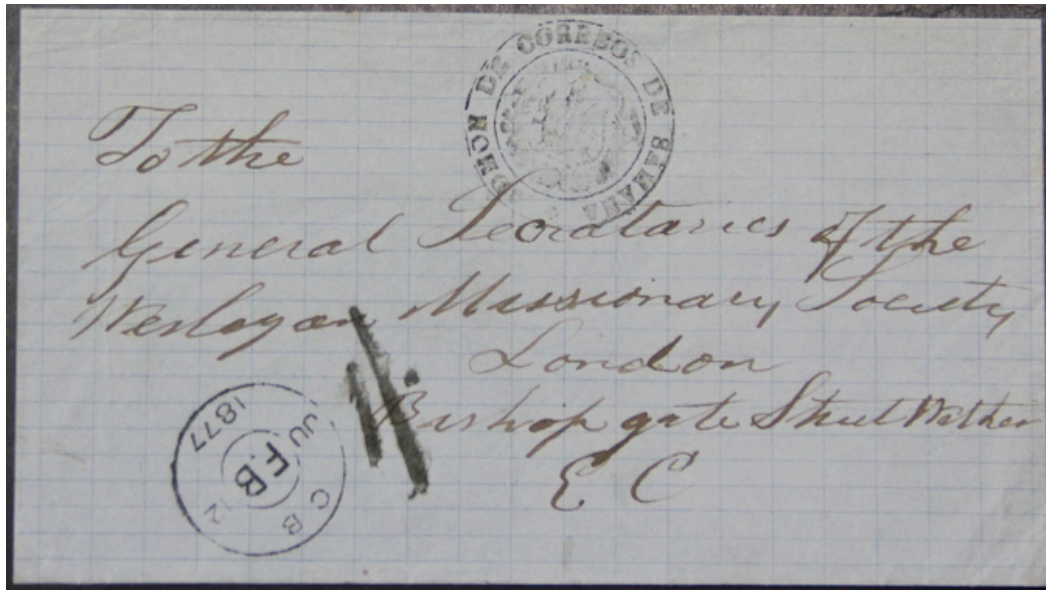 DE CORREOS DE SAMANA
To the
General Secretaries of the
Wesleyan Missionary Society
London
Bishopgate Street Within
E C
1/.
C B
JU 12
1877
F.B